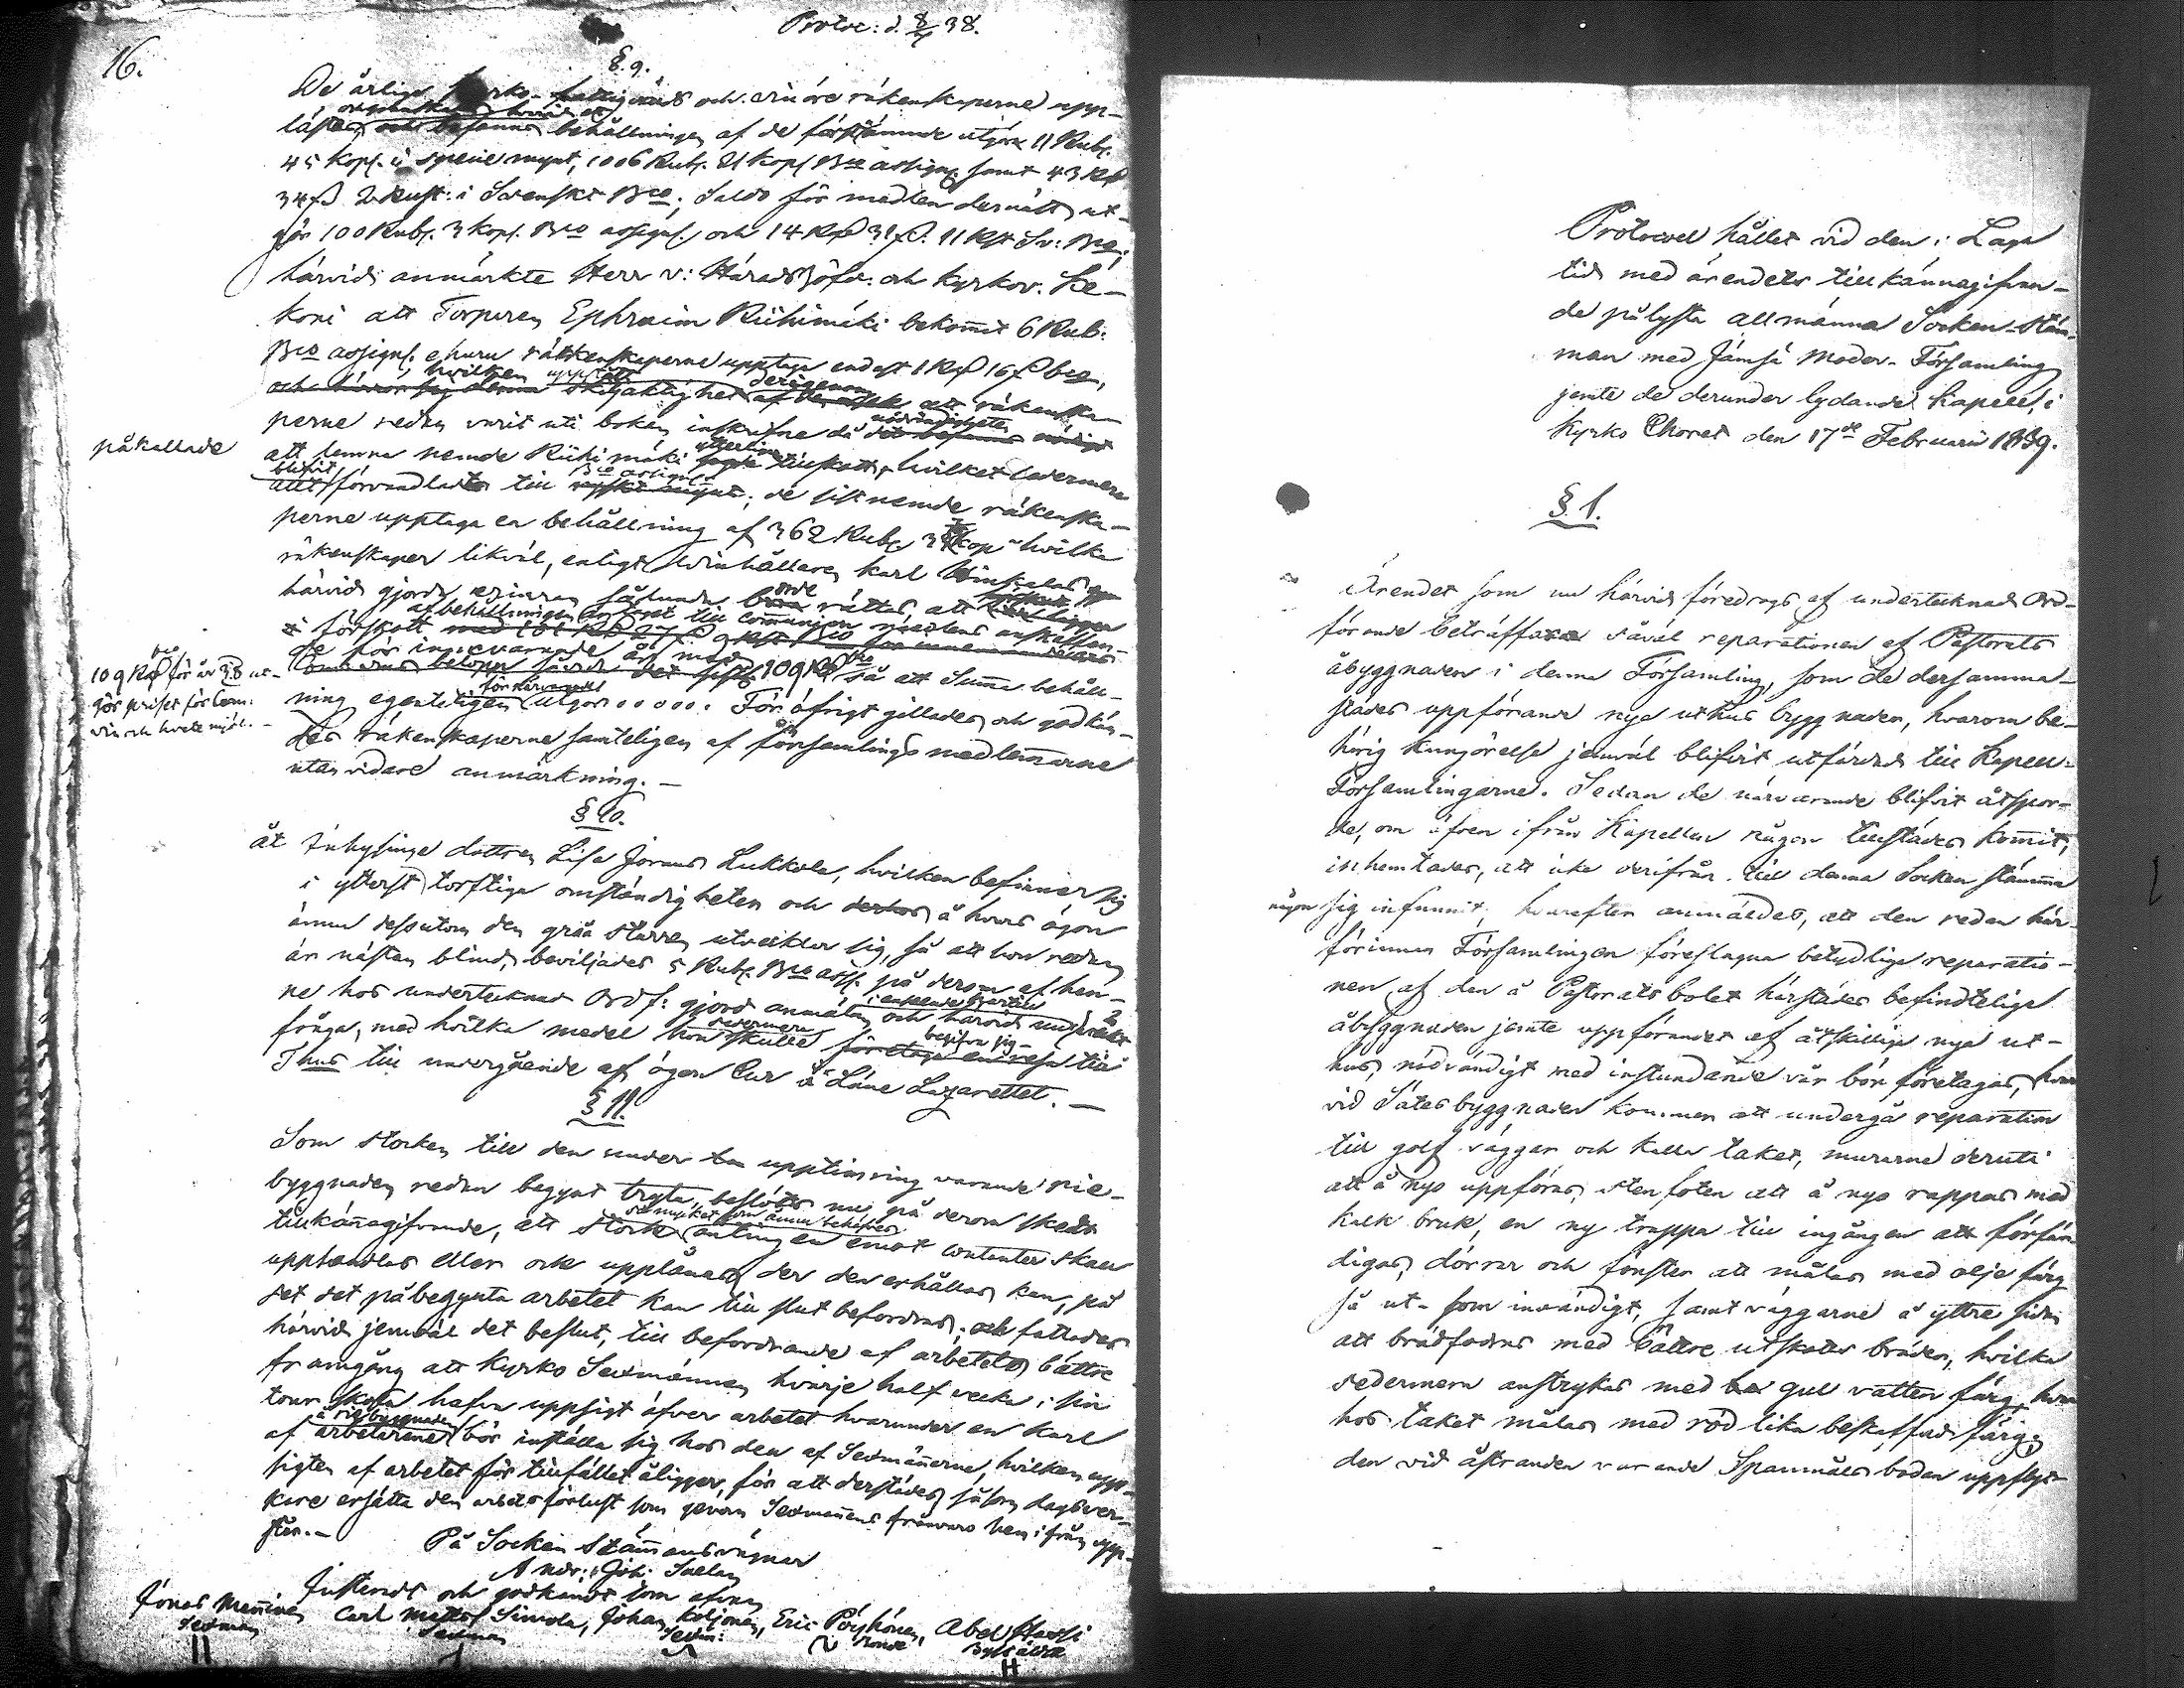 16.
Protoc: d. 8/4 38.
§. 9.
De årlige Kyrko- fattigvårds och vin öre räkenskaperne upp-
lästes, och befanns behållningen af de förstnämnde utgöra 11 Rubl.
45 Kop. i specie mynt, 1006 Rubl. 21 Kop Bco assign. samt 43 Rd
34 s. 2 Rust: i Svenskt Bco; Saldo för medlen dernäst, ut-
gör 100 Rubl. 3 Kop. Bco assign. och 14 Rd 31 s. 11 Rst Sv: Bco;
härvid anmärkte Herr v: Häradshöfd. och Kyrkov. He-
koni att Torparen Ephraim Riihimäki bekommit 6 Rub.
Bco assign. ehuru räkenskaperne upptaga endast 1 Rd 16 s bco,
hvilken skiljaktighet derigenom att räkenska-
perne redan varit uti boken inskrifne då nödvändigheten
påkallade
att lemna nemde Riihimäki ytterligare tillskott, hvilket sedermera
blifvit förvandladt till Bco assign; de sistnemde räkenska-
perne upptaga en behållning af 362 Rubl kop hvilka
räkenskaper likväl, enligt Vinhållaren Karl
härvid gjorda erinran sålunda borde rättas, att
i förskott af behållningen till Communion
för innevarande år med 109 Rd bco så att Summa behåll-
109 Rd bco för år 38 ut-
gör priset för Com:
vin och hvetemjöl. -
ning egenteligen för närvarande utgör ..... För öfrigt gillades och godkän-
des räkenskaperne samteligen af församlings medlemmarne
utan vidare anmärkning. -
§ 10.
åt Inhysinge dottren Lisa Jorans Lukkola, hvilken befinner sig
i ytterst torftiga omständigheter och å hvars ögon
ännu dessutom den gråa starren utvecklar sig, så att hon redan
är nästan blind, beviljades 5 Rub. Bco ass. på derom af hen-
ne hos undertecknad Ordf: gjord anmälan och härvid
fråga, med hvilka medel hon sedermera skulle begifva sig till
Thus till undergående af ögon Cur å Läne Lazarettet. -
§ 11.
Som stocken till den under upptimring varande rie-
byggnaden redan begynt tryta, beslöts nu på derom skedt
tillkännagifvande, att stock så mycket som ännu behöfves antingen emot contanter skall
upphandlas eller ock upplånas der den erhållas kan, på
det det påbegynta arbetet kan till slut befordras; och fattades
härvid jemväl det beslut, till befordrande af arbetets bättre
framgång att Kyrko Sexmännen hvarje half vecka i sin
tour skola hafva uppsigt öfver arbetet hvarunder en karl
af arbetarene å riebyggnaden bör inställa sig hos den af Sexmännerne, hvilken upp-
sigten af arbetet för tillfället åligger, för att derstädes såsom dagsver-
kare ersätta den arbets förlust som genom Sexmannens frånvaro hemifrån upp-
står. -
På Socken Stämmans vägnar
Andr: Joh:
Justerat och godkändt som ofvan
Jonas Manninen Carl Mattss Simola, Johan Koljonen, Eric Pöyhönen, Abel Hassi
Sexman Sexman Sexm: Bonde Byålder
Protocoll hållet vid den i Laga
tid med ärendets tillkännagifvan-
de pålysta allmänna Socken-Stäm-
man med Jämsä Moder- Församling
jemte de derunder lydande Kapell, i
Kyrko Choret den 17de Februarii 1839.
§ 1.
Ärendet som nu härvid föredrogs af undertecknad Ord-
förande beträffade såväl reparationen af Pastorats
åbyggnaden i denna Församling, som de dersamma-
städes uppförande nya uthus byggnader, hvarom be-
hörig Kungörelse jemväl blifvit utfärdad till Kapell-
Församlingarne. Sedan de närvarande blifvit åtspor-
de, om äfven ifrån Kapellen någon tillstädes kommit,
inhemtades, att icke derifrån till denna Socken stämma
någon sig infunnit; hvarefter anmäldes, att den redan här-
förinnan Församlingen föreslagna betydliga reparatio-
nen af den å Pastoratsbolet härstädes befindteliga
åbyggnaden jemte uppförandet af åtskilliga nya ut-
hus, nödvändigt med instundande vår bör företagas, hvar
vid Sätesbyggnaden kommer att undergå reparation
till golf väggar och kalla taket, murarne deruti
att å nyo uppföras, stenfoten att å nyo rappas med
kalk bruk, en ny trappa till ingången att förfär
digas, dörrar och fönster att målas med olje färg
så ut- som invändigt, samt väggarne å yttre sidan
att brädfodras med bättre utskotts bräder, hvilka
sedermera anstrykas med gul vatten färg, hvar
hos taket målas med röd lika beskaffad färg;
den vid åstranden varande Spannmåls boden uppflyt-